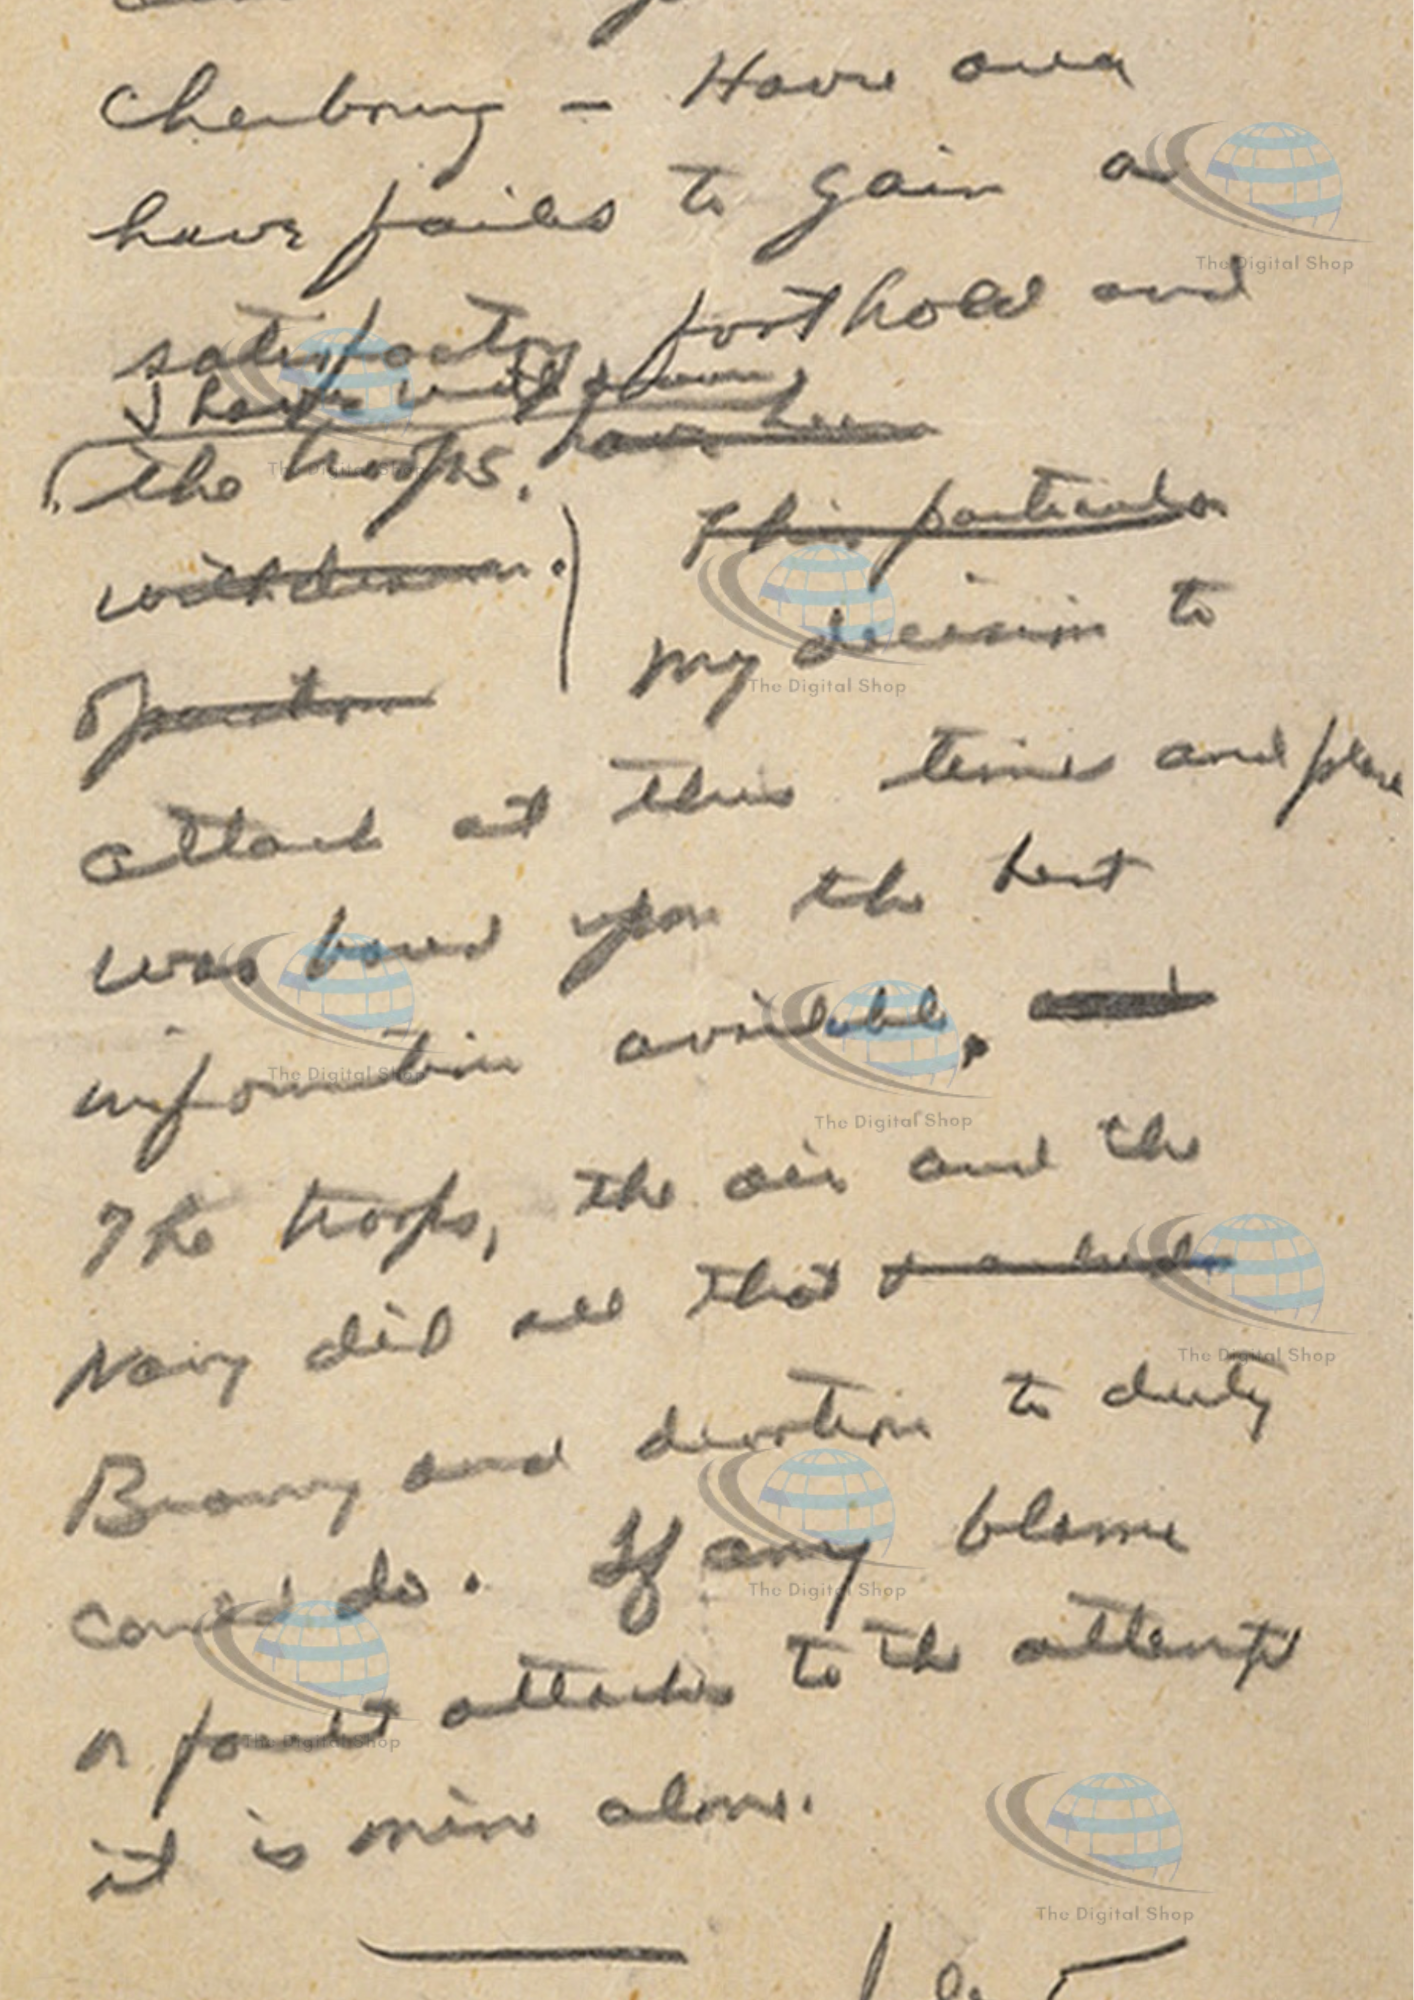 Cherbourg – Havre area
have failed to gain a
The Digital Shop
satisfactory foothold and
I have withdrawn
the troops. have been
The Digital Shop
withdrawn. This particular
operation My decision to
The Digital Shop
attack at this time and place
was based upon the best
information available.
The Digital Shop
The Digital Shop
The troops, the air and the
Navy did all that
The Digital Shop
Bravery and devotion to duty
could do. If any blame
The Digital Shop
or fault attaches to the attempt
The Digital Shop
it is mine alone.
The Digital Shop
July 5